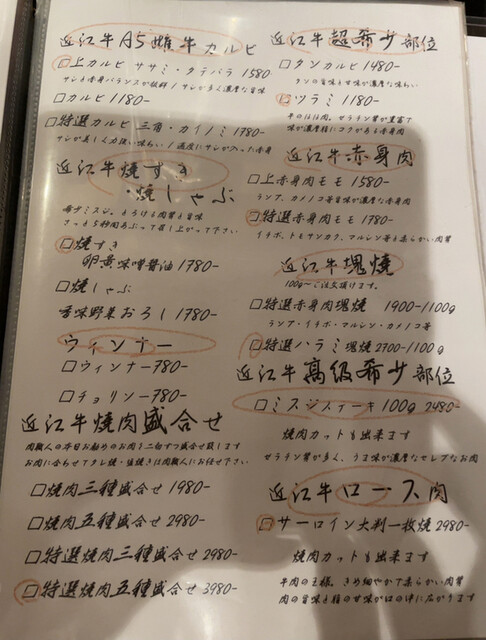 近江牛A5雌牛カルビ
□上カルビ ササミ・タテバラ 1580
サシと赤身バランスが抜群/サシが多く濃厚な旨味
□カルビ 1180-
□特選カルビ 三角・カイノミ 1780-
サシが美しく力強い味わい/適度にサシが入った赤身
近江牛焼すき
・焼しゃぶ
希少ミスジ。とろける肉質と旨味
さっと5秒間あぶって召し上がって下さい
□焼すき
卵黄味噌醤油 1780-
□焼しゃぶ
香味野菜おろし 1780-
ウィンナー
□ウィンナー780-
□チョリソー780-
近江牛焼肉盛合せ
肉職人の本日お勧めのお肉を二切ずつ盛合せ致します
お肉に合わせてタレ焼・塩焼きは肉職人にお任せ下さい
□焼肉三種盛合せ 1980-
□焼肉五種盛合せ 2980-
□特選焼肉三種盛合せ 2980-
□特選焼肉五種盛合せ 3980-
近江牛超希少部位
□タンカルビ 1480-
タンの旨味と甘味が濃厚な味わい
□ツラミ 1180-
牛のほほ肉、ゼラチン質が豊富で
味が濃厚にコクがある赤身肉
近江牛赤身肉
□上赤身肉モモ 1580-
ランプ、カメノコ等旨味が濃厚な赤身肉
□特選赤身肉モモ 1780-
イチボ、トモサンカク、マルシン等と柔らかい肉質
近江牛塊焼
100g〜ご注文頂けます。
□特選赤身肉塊焼 1900-1100g
ランプ・イチボ・マルシン・カメノコ等
□特選ハラミ塊焼 2700-1100g
近江牛高級希少部位
□ミスジステーキ 100g 2480-
焼肉カットも出来ます
ゼラチン質が多く、うま味が濃厚なセレブなお肉
近江牛ロース肉
□サーロイン大判一枚焼 2980-
焼肉カットも出来ます
牛肉の王様。きめ細やかで柔らかい肉質
肉の旨味と脂の甘味が口の中に広がります